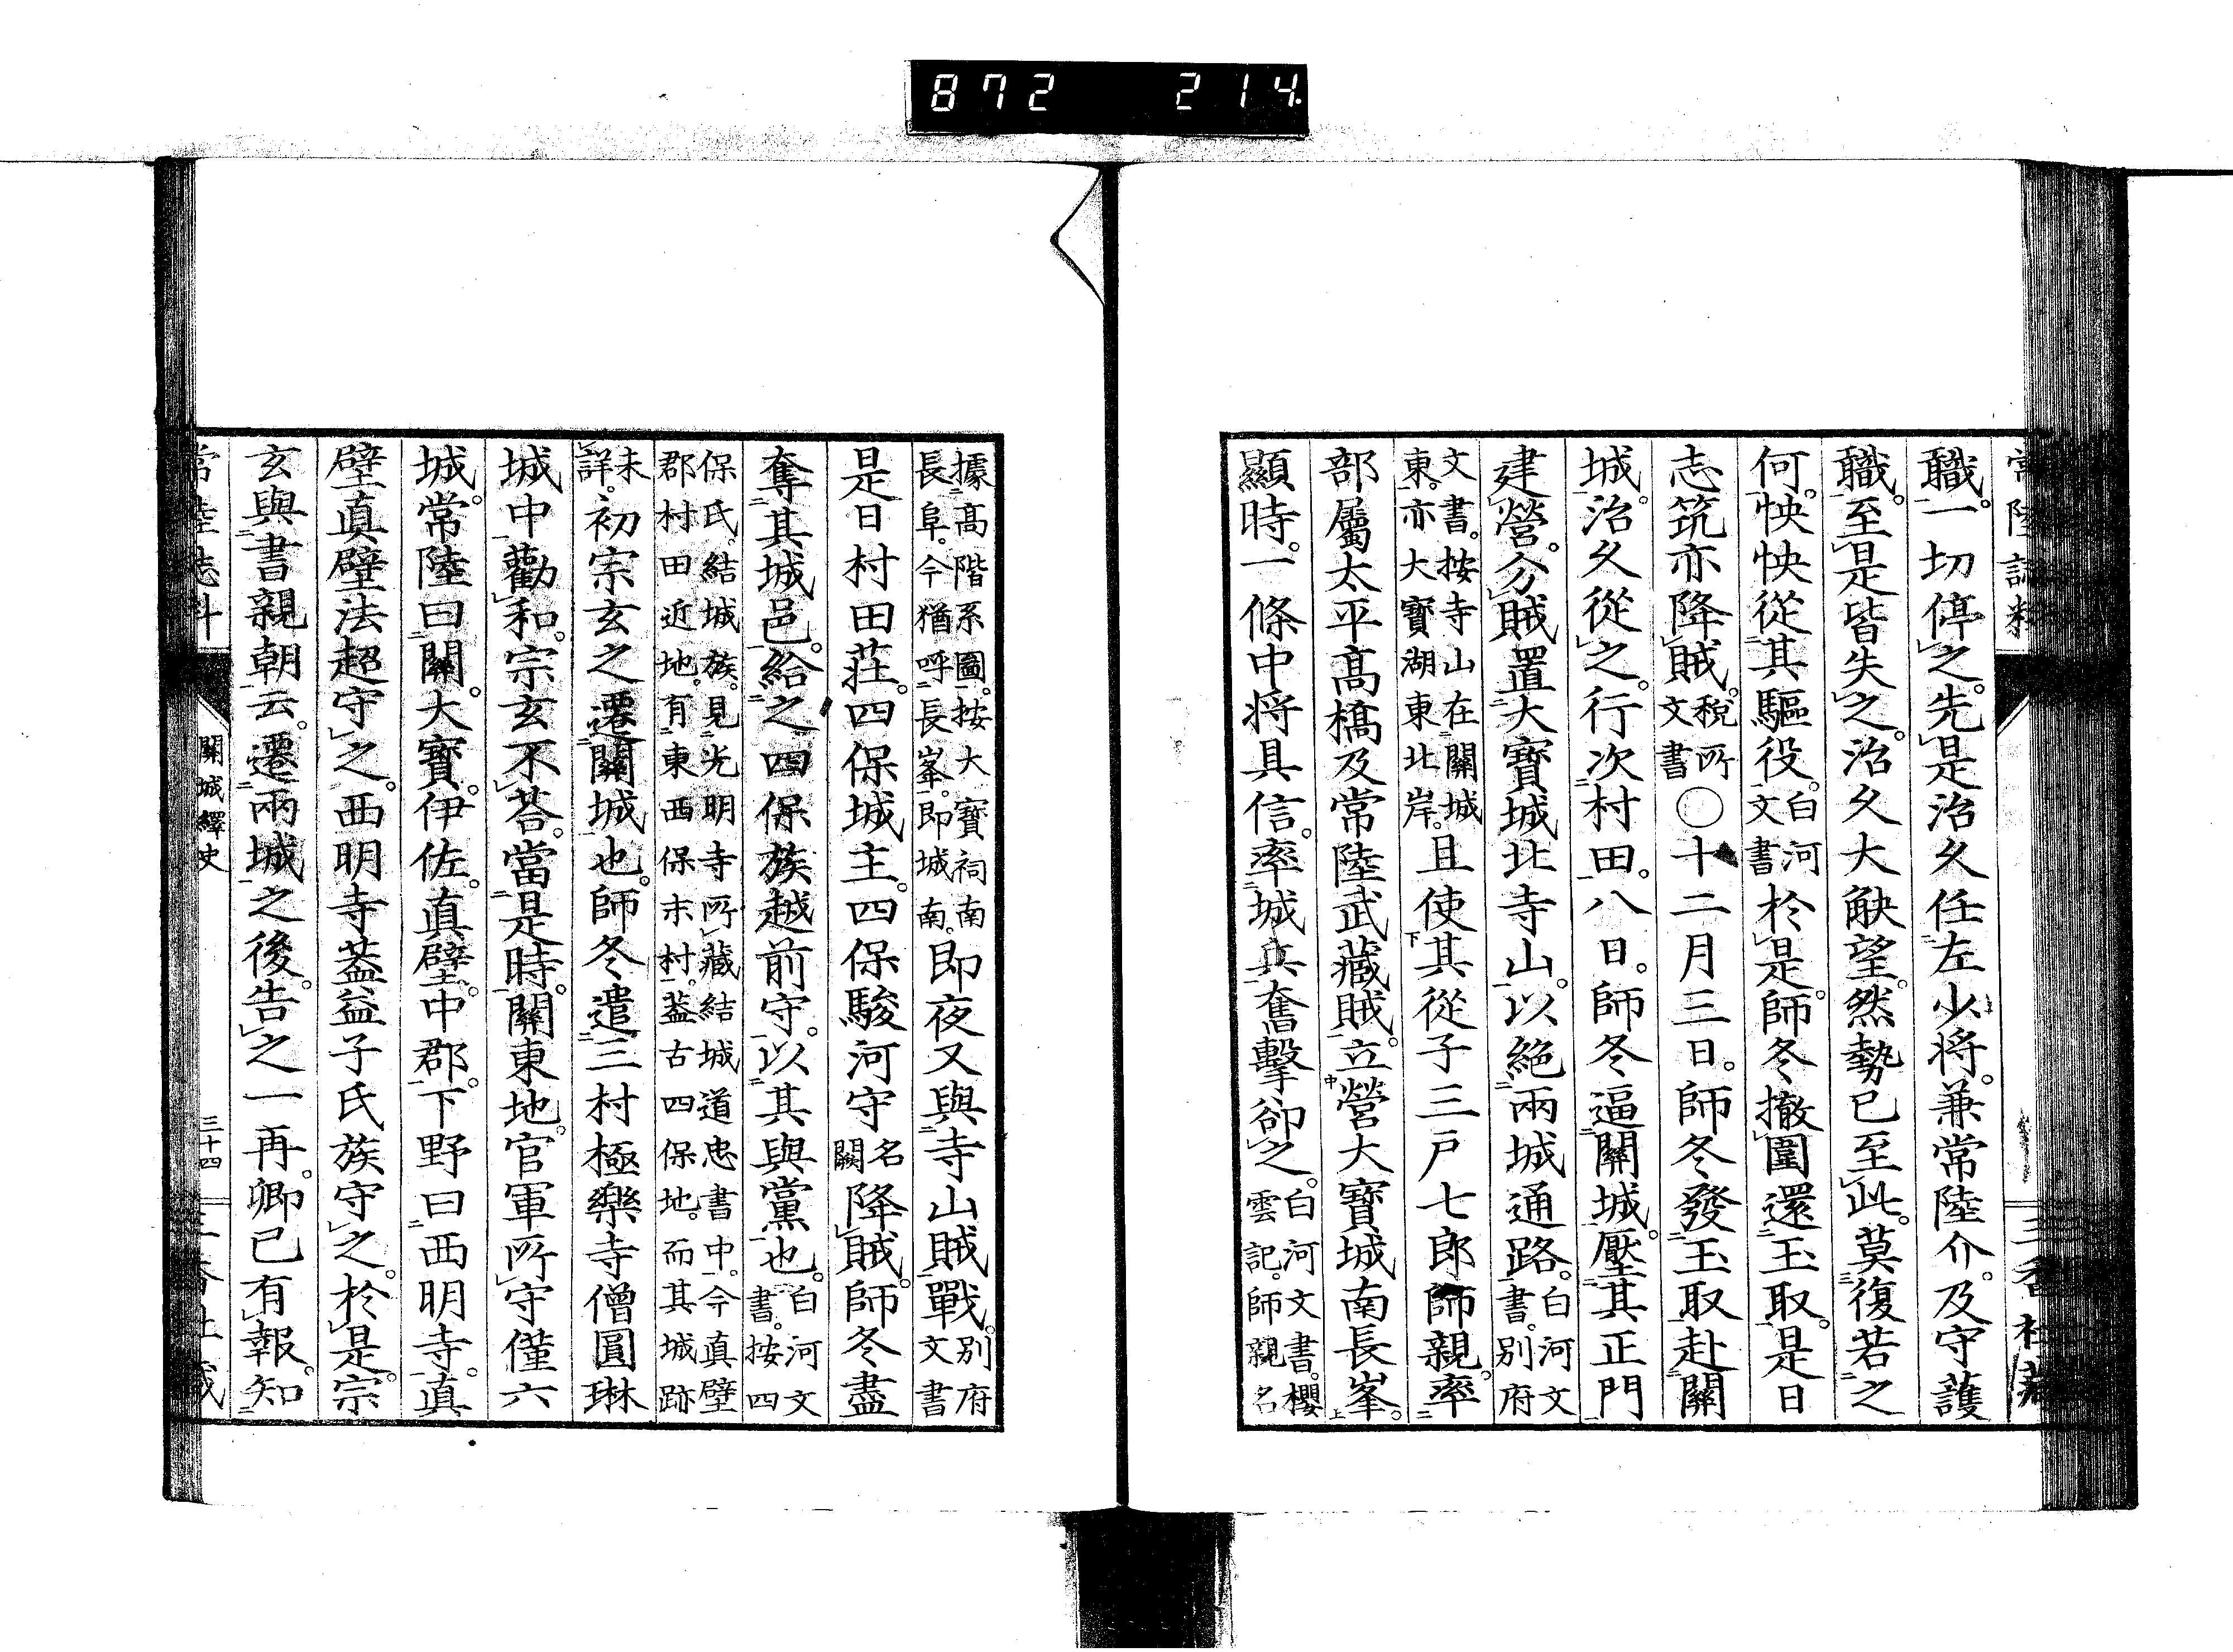 872 214
職。一切停之。先是治久任左少將。兼常陸介。及守護
職。至是皆失之。治久大觖望。然勢已至此。莫復若之
何。怏怏從其驅役。白河文書於是。師冬撤圍還玉取。是日
志筑亦降賊。稅所文書〇十二月三日。師冬發玉取赴關
城。治久從之。行次村田。八日。師冬逼關城。壓其正門
建營。分賊置大寶城北寺山。以絕兩城通路。白河文書。別府
文書。按寺山在關城東。亦大寶湖東北岸。且使其從子三戶七郎師親。率
部屬太平高橋及常陸武藏賊。立營大寶城南長峯。
顯時。一條中將具信。率城兵奮擊卻之。白河文書。櫻雲記。師親名
據高階系圖。按大寶祠南長阜。今猶呼長峯。即城南。即夜又與寺山賊戰。別府文書
是日村田莊。四保城主。四保駿河守名闕降賊。師冬盡
奪其城邑。給之四保族越前守。以其與黨也。白河文書。按四
保氏。結城族。見光明寺所藏結城道忠書中。今真壁郡村田近地。有東西保末村。蓋古四保地。而其城跡
未詳。初宗玄之遷關城也。師冬遣三村極樂寺僧圓琳
城中勸和。宗玄不荅。當是時。關東地。官軍所守僅六
城。常陸曰關。大寶。伊佐。真壁。中郡。下野曰西明寺。真
壁真壁法超守之。西明寺蓋益子氏族守之。於是。宗
玄與書親朝云。遷兩城之後。告之一再。卿已有報。知
關城繹史
三十四